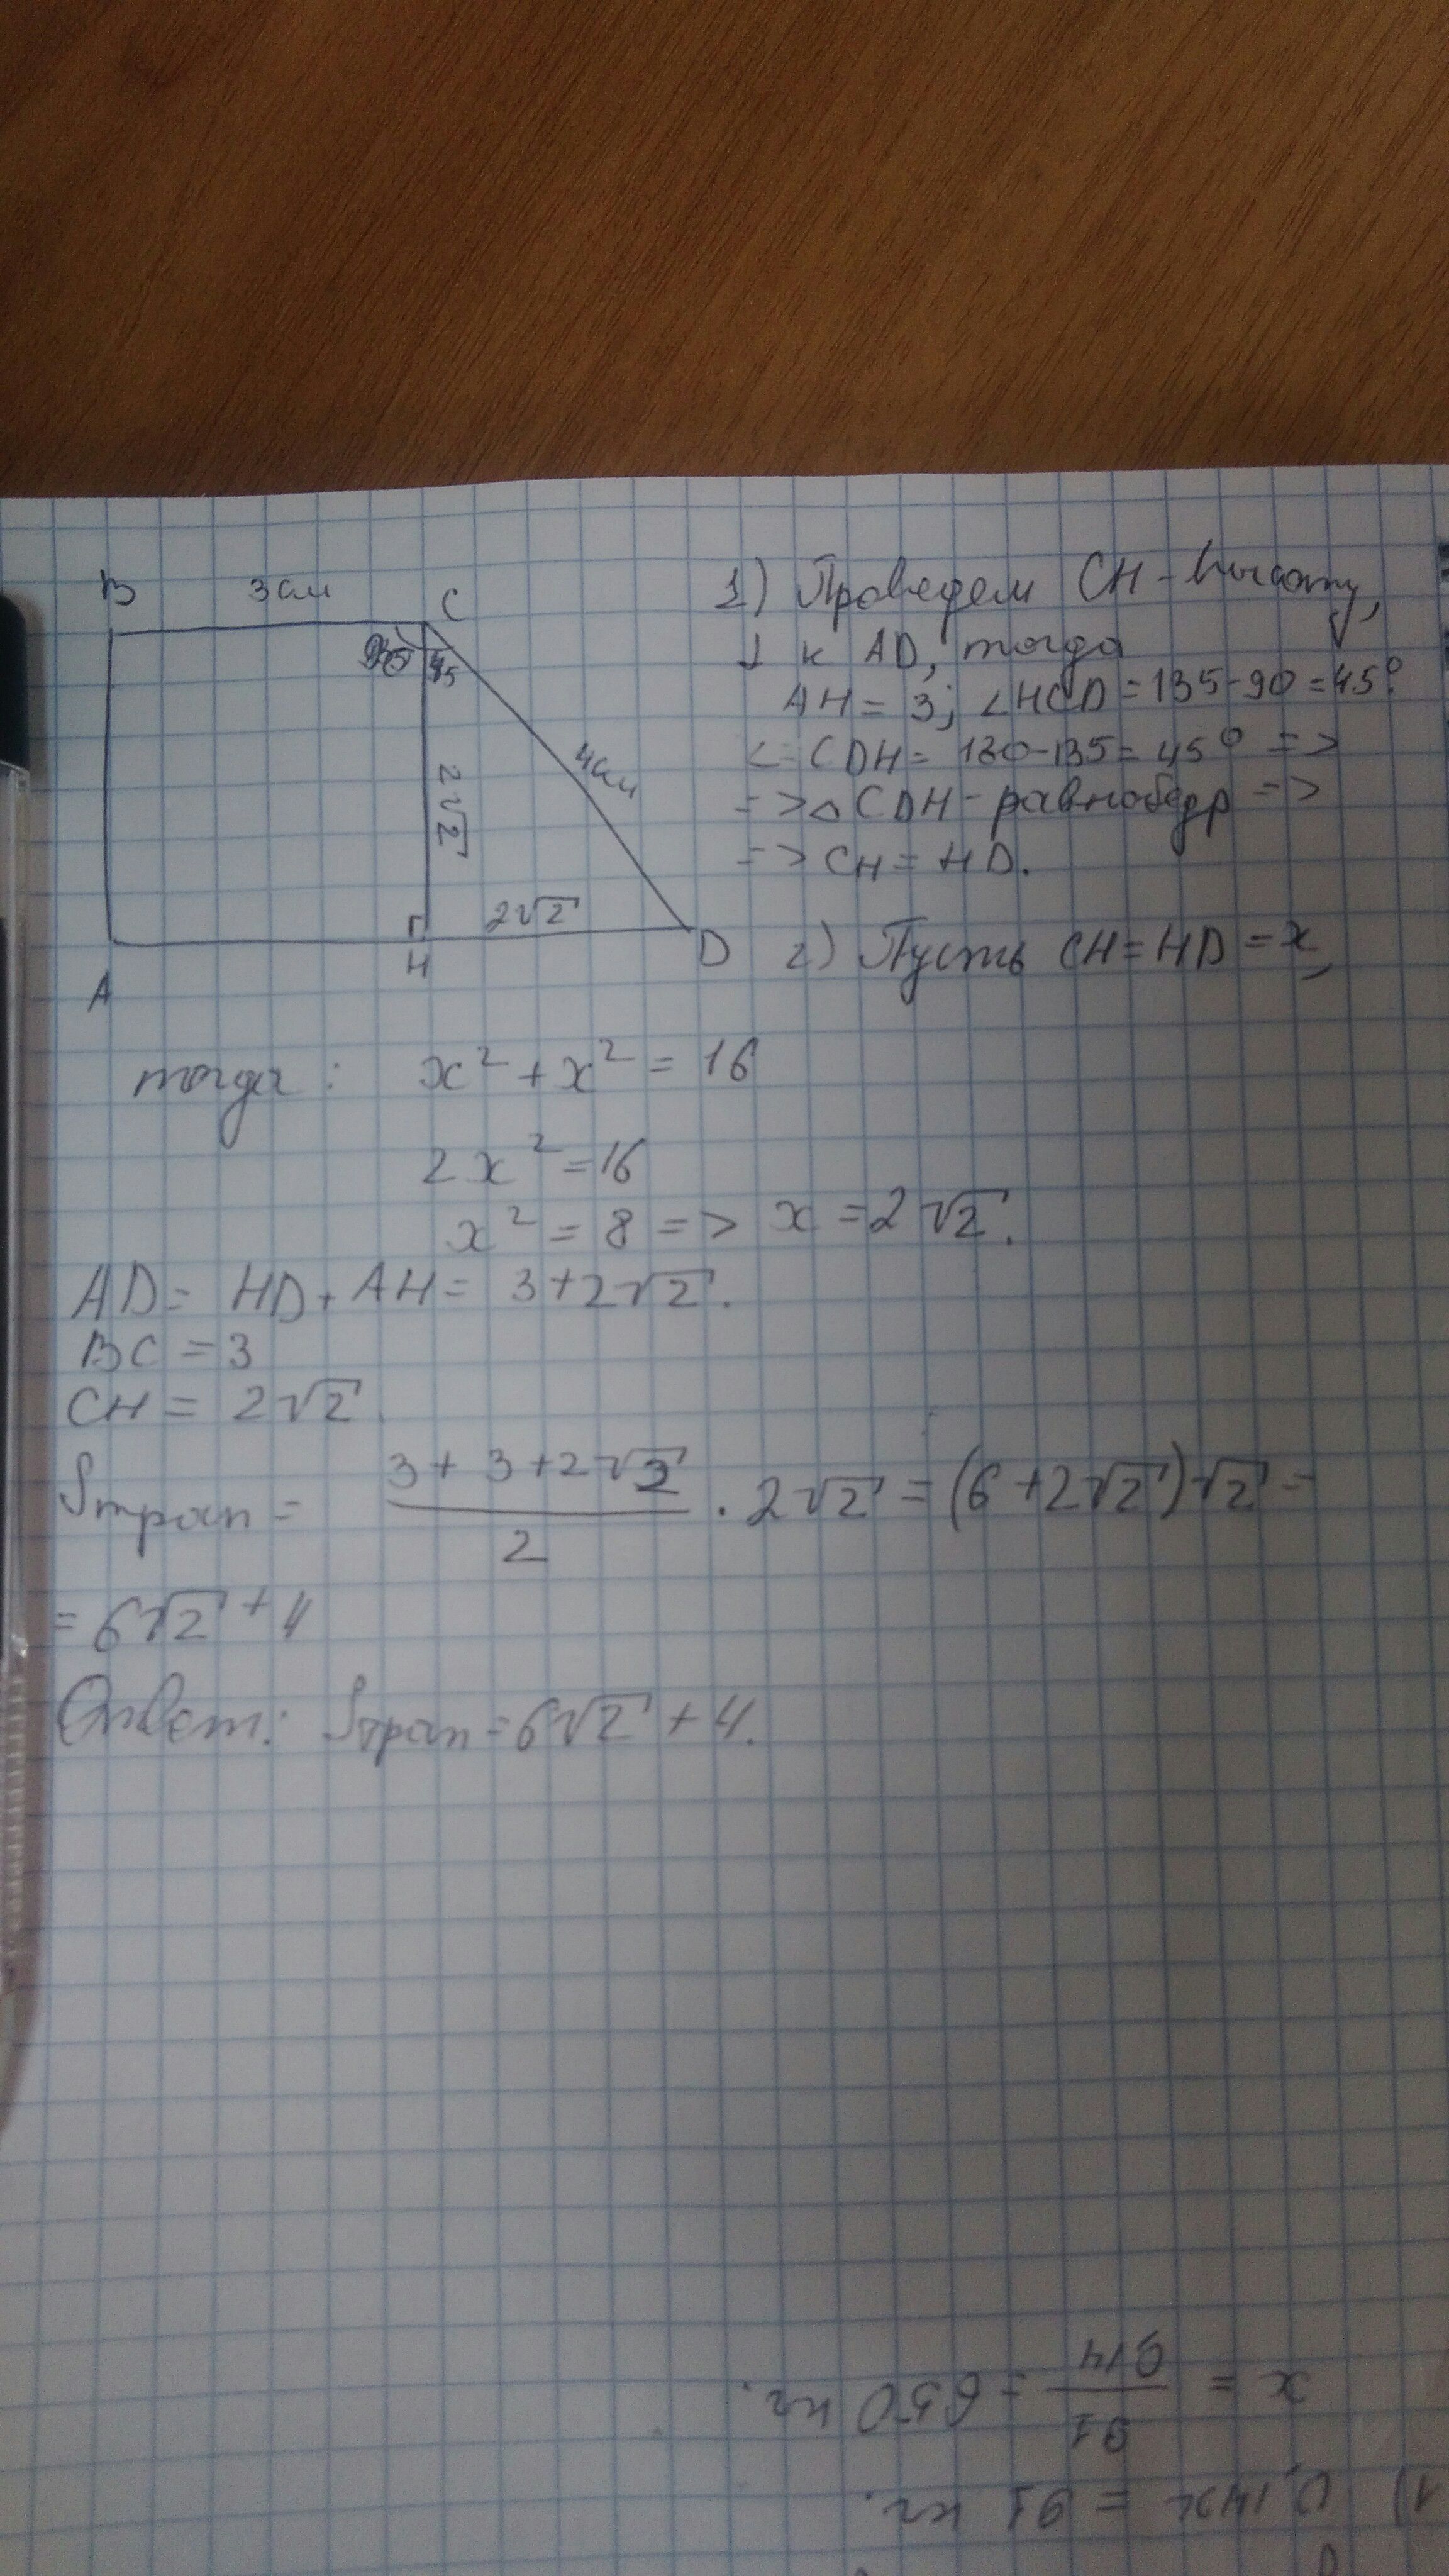 B 3см C
90 45
4см
2√2
2√2
H
D
A
1) Проведем CH - высоту,
⊥ к AD, тогда
AH = 3; ∠HCD = 135-90 = 45°
∠ CDH = 180-135 = 45° =>
=> △ CDH - равнобедр =>
=> CH = HD.
2) Пусть CH = HD = x,
тогда: x² + x² = 16
2x² = 16
x² = 8 => x = 2√2.
AD = HD + AH = 3+2√2.
BC = 3
CH = 2√2.
Sтрап = (3 + 3 + 2√2)/2 · 2√2 = (6 + 2√2)√2 =
= 6√2 + 4
Ответ: Sтрап = 6√2 + 4.
1) 0,14x = 91 кг.
x = 91/0,14 = 650 кг.